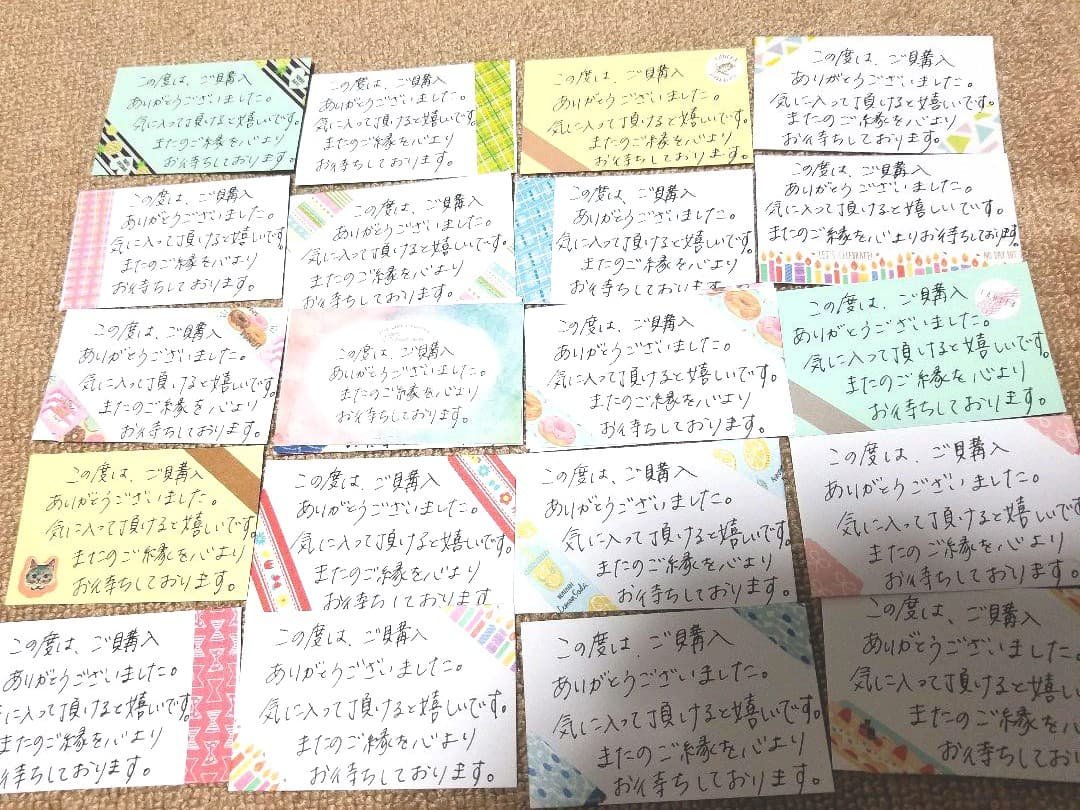 この度は、ご購入
ありがとうございました。
気に入って頂けると嬉しいです。
またのご縁を心より
お待ちしております。
この度は、ご購入
ありがとうございました。
気に入って頂けると嬉しいです。
またのご縁を心より
お待ちしております。
この度は、ご購入
ありがとうございました。
気に入って頂けると嬉しいです。
またのご縁を心より
お待ちしております。
この度は、ご購入
ありがとうございました。
気に入って頂けると嬉しいです。
またのご縁を心より
お待ちしております。
この度は、ご購入
ありがとうございました。
気に入って頂けると嬉しいです。
またのご縁を心より
お待ちしております。
この度は、ご購入
ありがとうございました。
気に入って頂けると嬉しいです。
またのご縁を心より
お待ちしております。
この度は、ご購入
ありがとうございました。
気に入って頂けると嬉しいです。
またのご縁を心より
お待ちしております。
この度は、ご購入
ありがとうございました。
気に入って頂けると嬉しいです。
またのご縁を心よりお待ちしております。
LET'S CELEBRATE!
この度は、ご購入
ありがとうございました。
気に入って頂けると嬉しいです。
またのご縁を心より
お待ちしております。
この度は、ご購入
ありがとうございました。
またのご縁を心より
お待ちしております。
この度は、ご購入
ありがとうございました。
気に入って頂けると嬉しいです。
またのご縁を心より
お待ちしております。
この度は、ご購入
ありがとうございました。
気に入って頂けると嬉しいです。
またのご縁を心より
お待ちしております。
この度は、ご購入
ありがとうございました。
気に入って頂けると嬉しいです。
またのご縁を心より
お待ちしております。
この度は、ご購入
ありがとうございました。
気に入って頂けると嬉しいです。
またのご縁を心より
お待ちしております。
この度は、ご購入
ありがとうございました。
気に入って頂けると嬉しいです。
またのご縁を心より
お待ちしております。
Lemon Soda
この度は、ご購入
ありがとうございました。
気に入って頂けると嬉しいです
またのご縁を心より
お待ちしております。
この度は、ご購入
ありがとうございました。
に入って頂けると嬉しいです。
またのご縁を心より
待ちしております。
この度は、ご購入
ありがとうございました。
気に入って頂けると嬉しいです。
またのご縁を心より
お待ちしております。
この度は、ご購入
ありがとうございました。
気に入って頂けると嬉しいです。
またのご縁を心より
お待ちしております。
この度は、ご購入
ありがとうございました
気に入って頂けると嬉しい
またのご縁を心より
お待ちしており